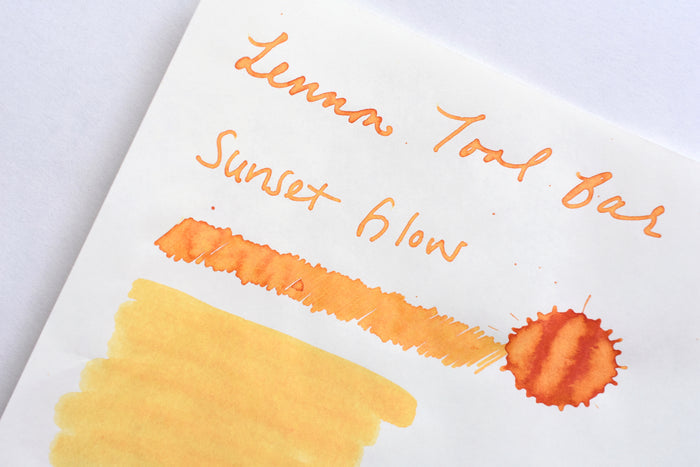 Lennon Tool Bar
Sunset Glow